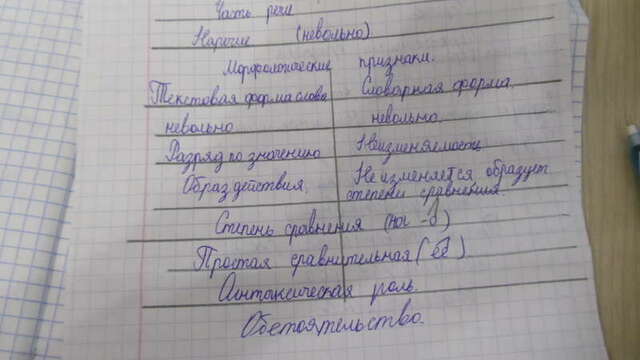 Часть речи
Наречие (невольно)
Морфологические признаки.
Текстовая форма слова Словарная форма.
невольно невольно.
Разряд по значению Неизменяемость
Образ действия. Не изменяется образует
степени сравнения
Степень сравнения (на -о)
Простая сравнительная (ее).
Синтаксическая роль.
Обстоятельство.